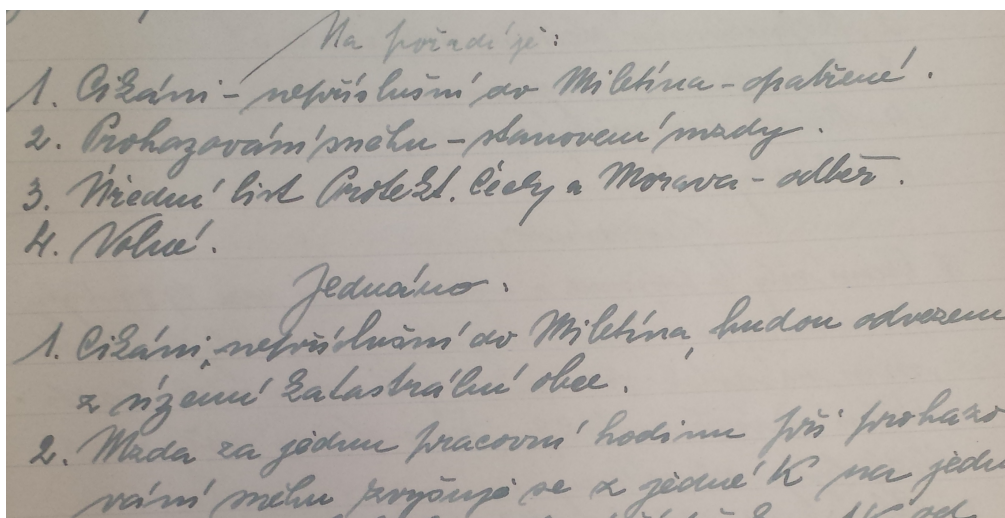 Na pořadí je:
1. Cikáni - nepříslušní do Miletína - opatření.
2. Prohazování sněhu - stanovení mzdy.
3. Úřední list Protekt. Čechy a Morava - odběr.
4. Volné.
Jednáno.
1. Cikáni, nepříslušní do Miletína, budou odvezeni
z území katastrální obce.
2. Mzda za jednu pracovní hodinu při prohazo
vání sněhu zvyšuje se z jedné K na jednu